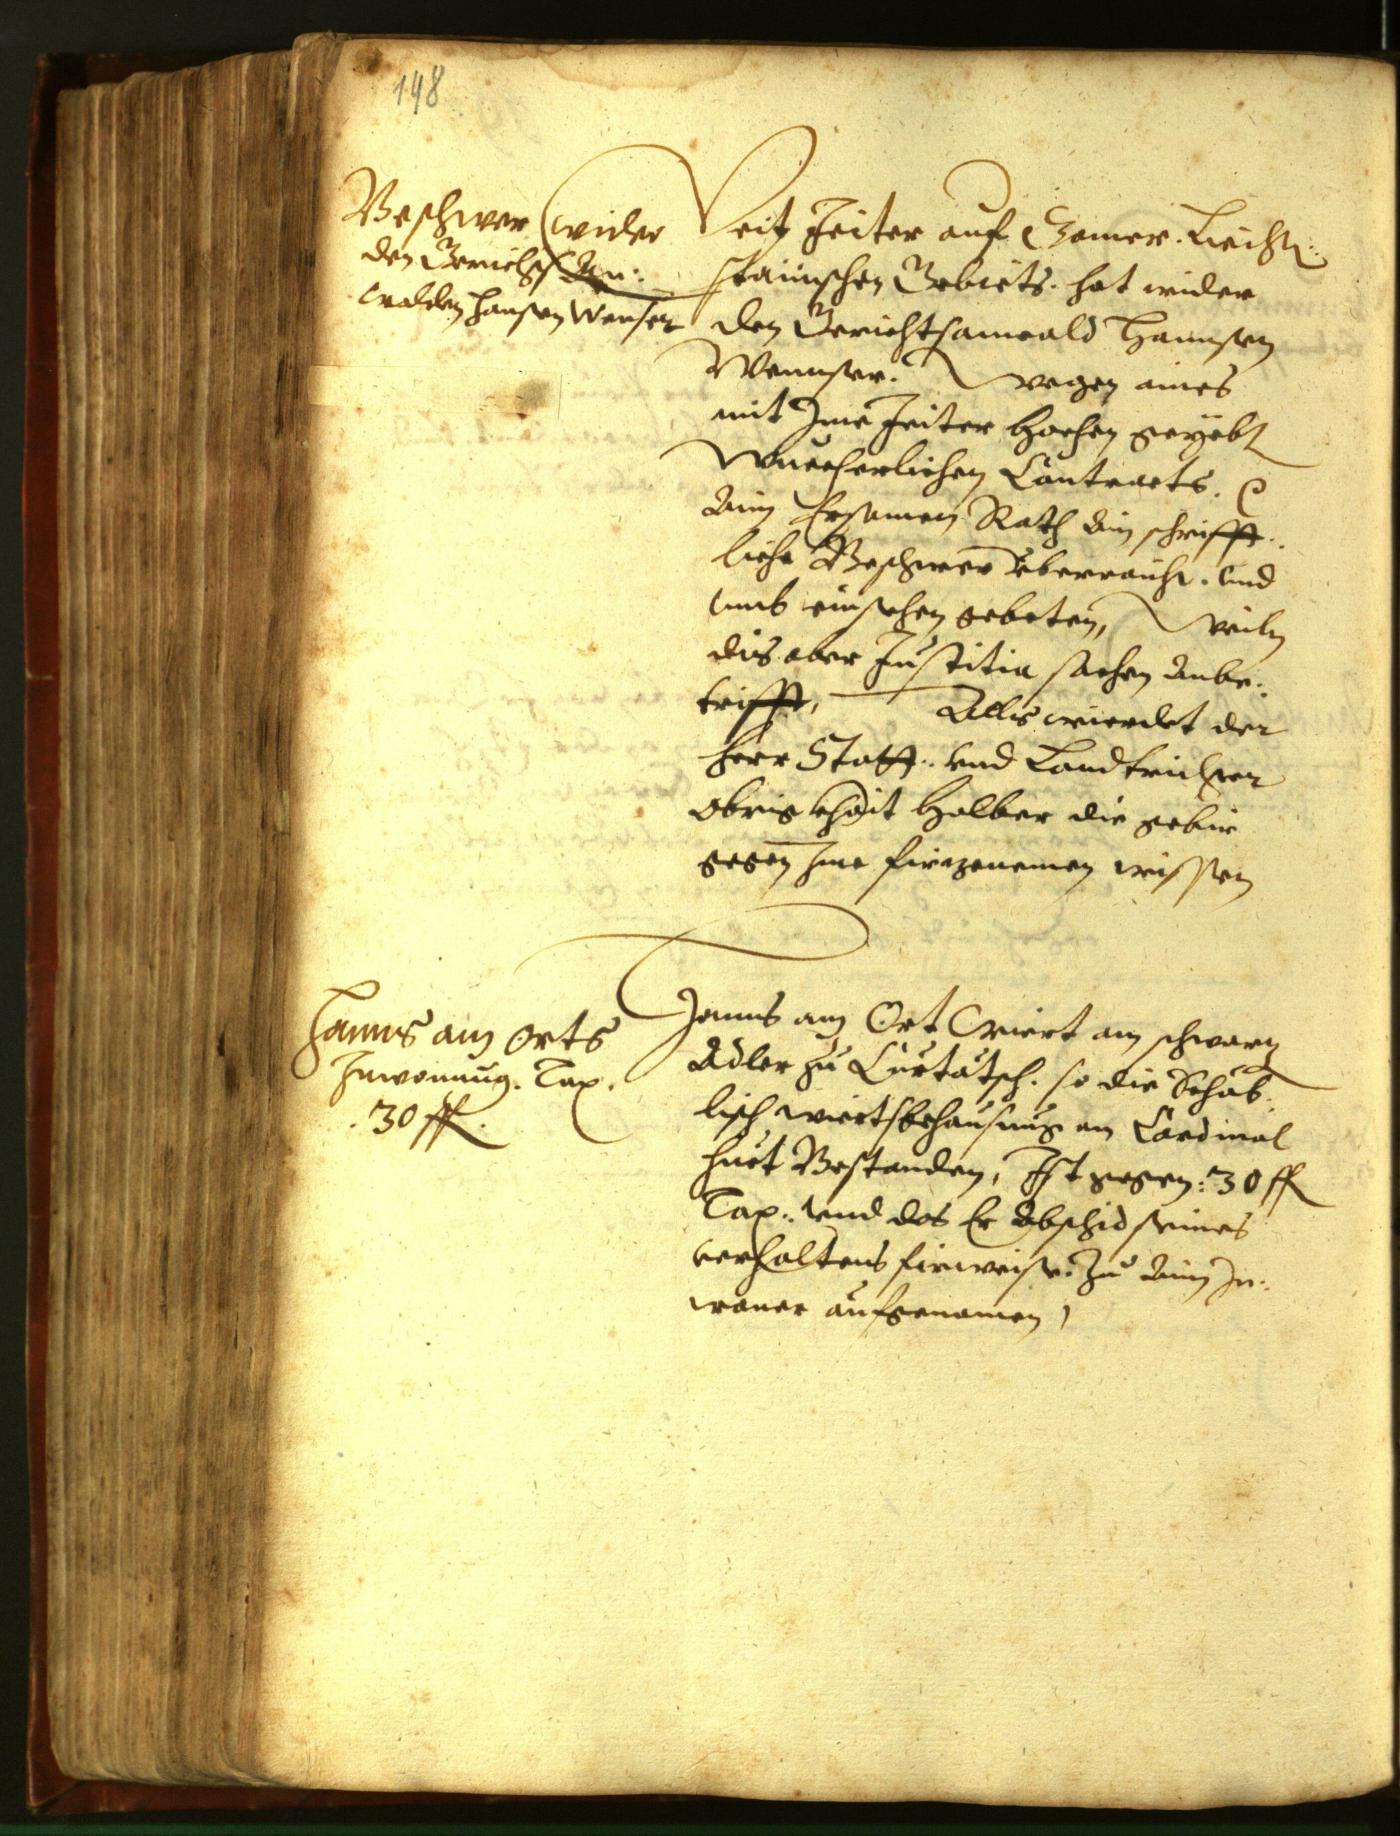 148
Beschwer wider
den Gerichts An:
walden Hansen Wenser
Veit Zeiter auf Samer. Liecht:
stainischen Gebiets. hat wider
den Gerichtsanwald Hannsen
Wennser. wegen aines
mit Ime Zeiter hochen geyebt
Wuecherlichen Contracts.
ainn Ersamen Rath ain schrifft:
liche Beschwer überraicht. und
umb einsehen gebeten, weiln
dis aber Justitia sachen anbe:
trifft, Alls wierdet der
Herr Statt: und Landtrichter
Obrigkhait halber die gebür
gegen Ime fürzenemen wissen
Hanns am Orts
Inwonnug. Tax.
.30 ff.
Hanns am Ort Wiert am schwarz
Adler zu Curtätsch. so die
lisch wiertsbehausung am Cardinal
huet Bestanden, Ist gegen: 30 ff
Tax: und das Er Abschid seines
verhaltens fürweise. Zu ainn In:
woner aufgenomen,